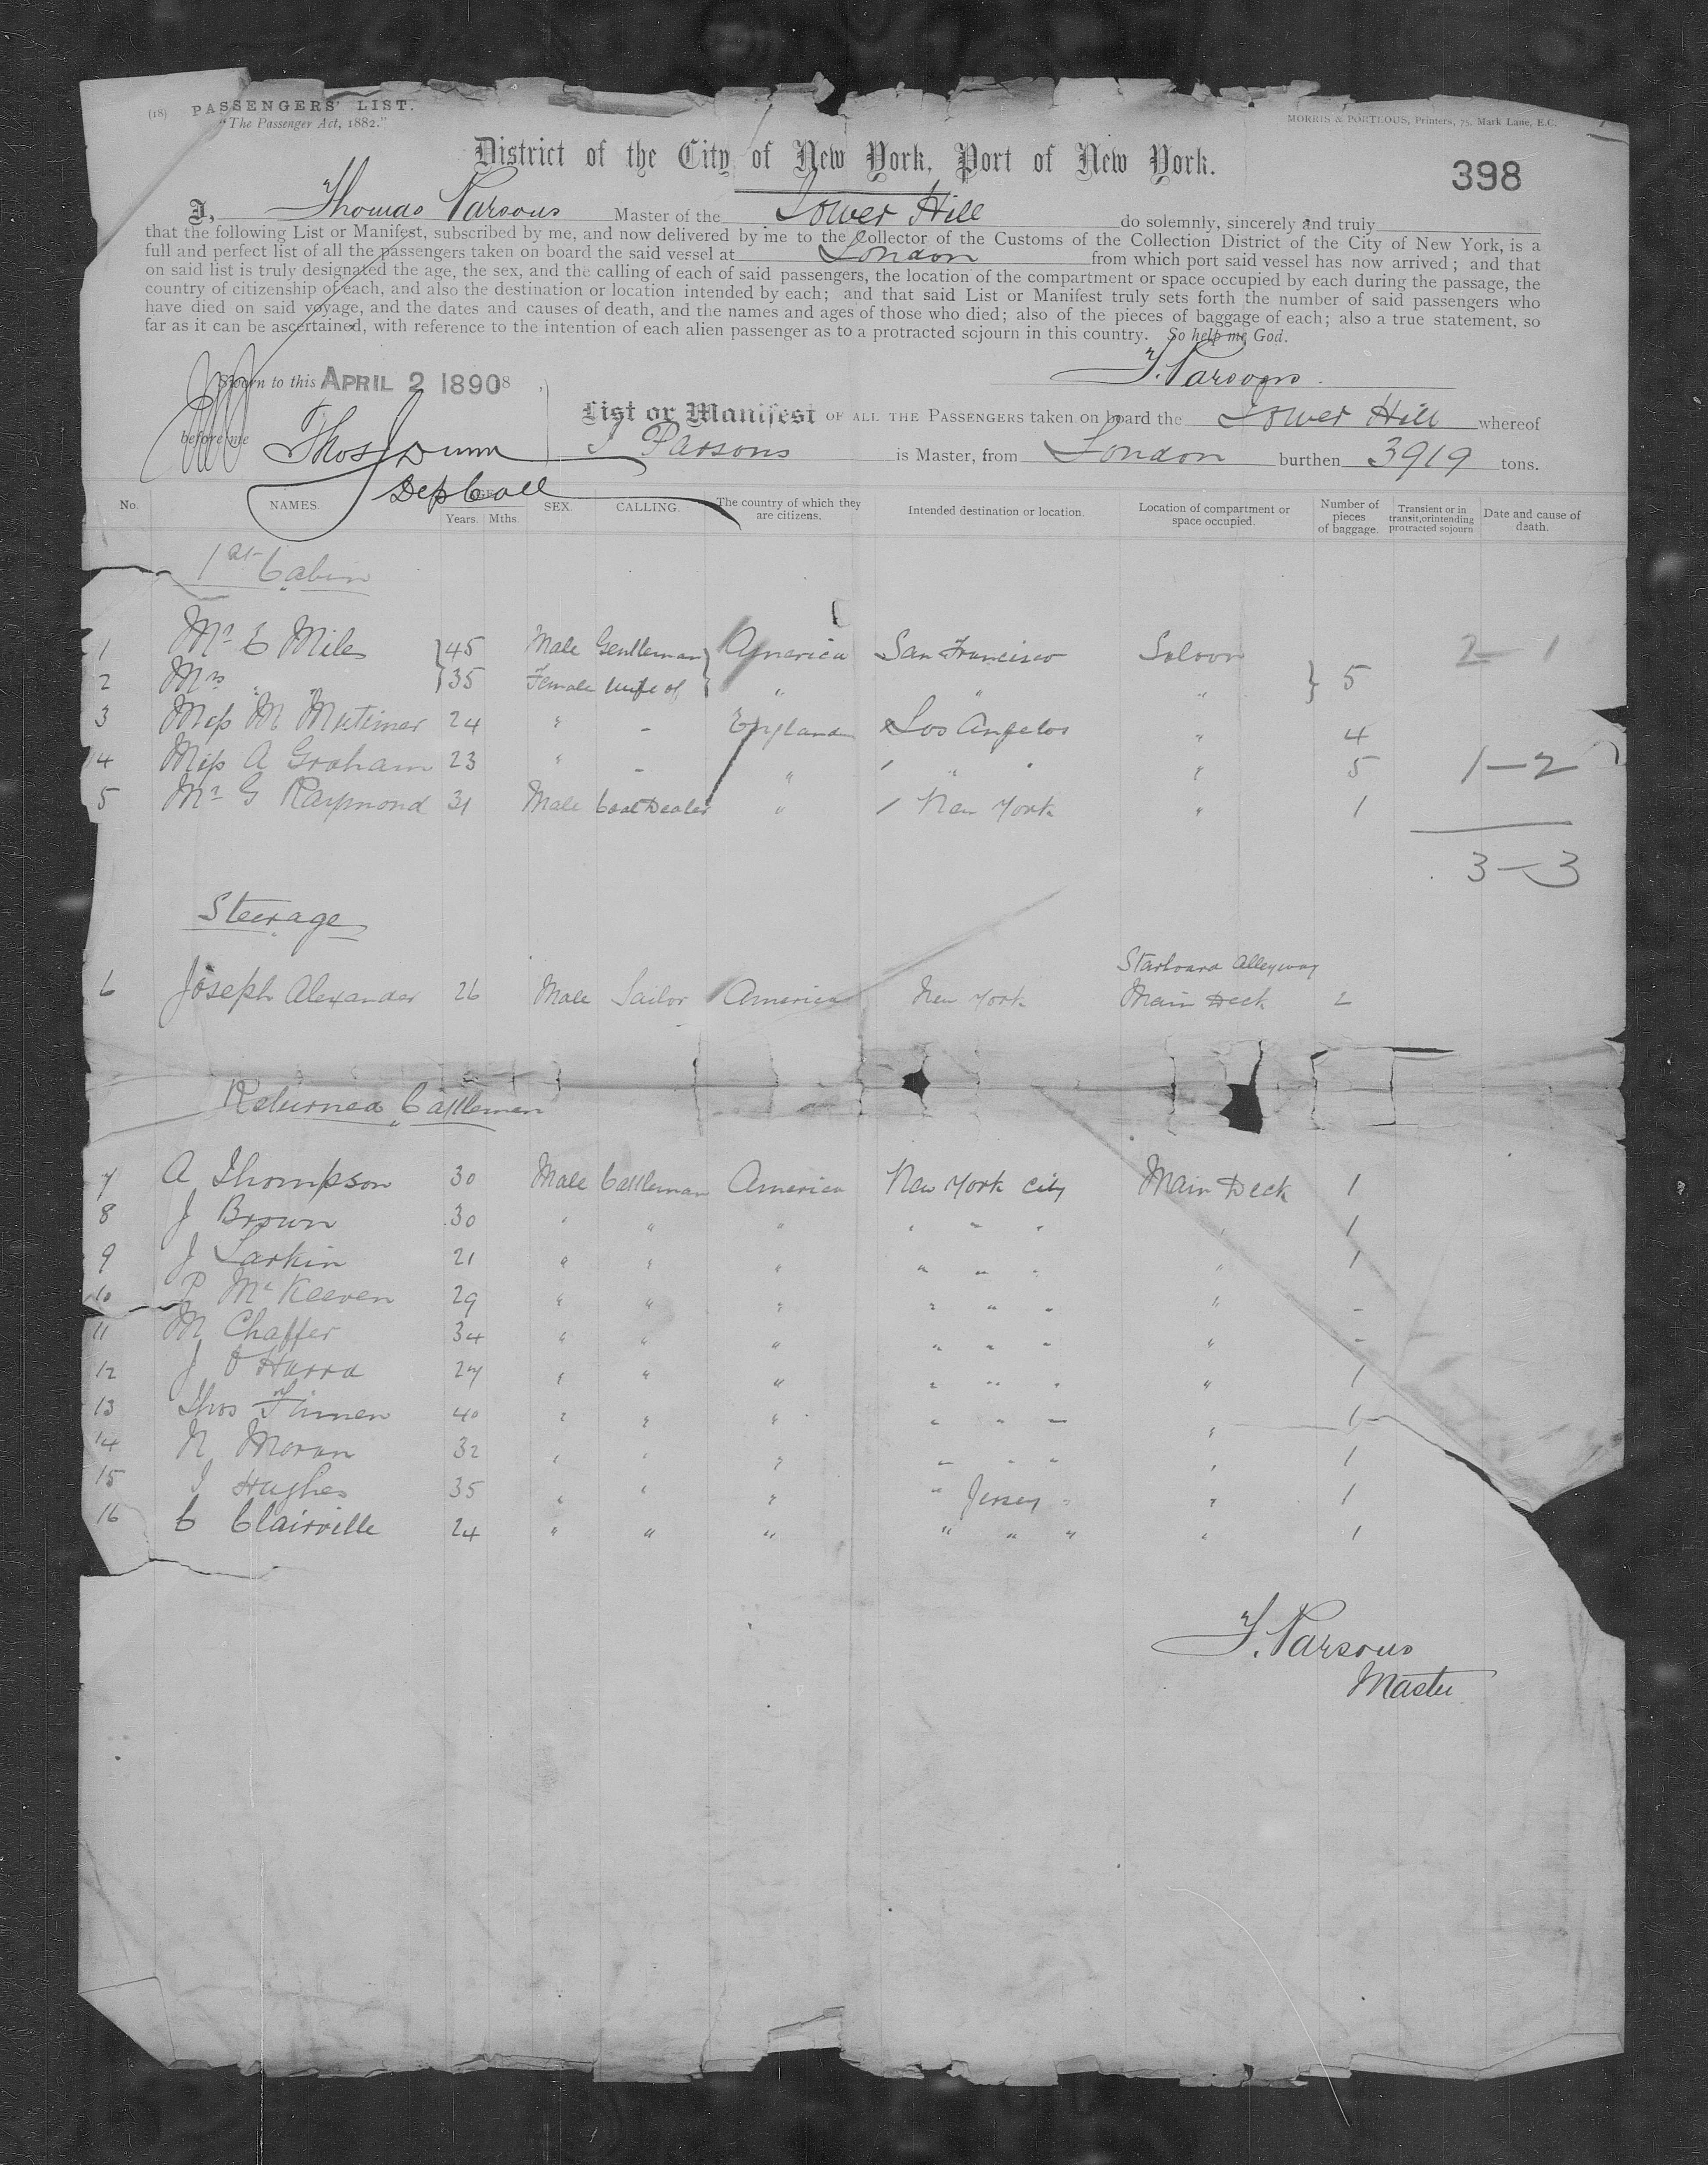 (18) PASSENGERS' LIST.
"The Passenger Act, 1882."
MORRIS & PORTEOUS, Printers, 75, Mark Lane, E.C.
District of the City of New York, Port of New York.
398
I, Thomas Parsons Master of the Tower Hill do solemnly, sincerely and truly
that the following List or Manifest, subscribed by me, and now delivered by me to the Collector of the Customs of the Collection District of the City of New York, is a
full and perfect list of all the passengers taken on board the said vessel at London from which port said vessel has now arrived; and that
on said list is truly designated the age, the sex, and the calling of each of said passengers, the location of the compartment or space occupied by each during the passage, the
country of citizenship of each, and also the destination or location intended by each; and that said List or Manifest truly sets forth the number of said passengers who
have died on said voyage, and the dates and causes of death, and the names and ages of those who died; also of the pieces of baggage of each; also a true statement, so
far as it can be ascertained, with reference to the intention of each alien passenger as to a protracted sojourn in this country. So help me God.
T. Parsons
Sworn to this APRIL 2 1890 8
before me Thos Dunn
Dep Coll
List or Manifest OF ALL THE PASSENGERS taken on board the Tower Hill whereof
T Parsons is Master, from London burthen 3919 tons.
No. NAMES. AGE. Years. Mths. SEX. CALLING. The country of which they are citizens. Intended destination or location. Location of compartment or space occupied. Number of pieces of baggage. Transient or in transit, or intending protracted sojourn Date and cause of death.
1st Cabin
1 Mr E Miles 45 Male Gentleman America San Francisco Saloon 2 — 1
2 Mrs " " 35 Female Wife of " " " 5
3 Miss M Mutimer 24 " - England Los Angelos " 4
4 Miss A Graham 23 " - " " " 5 1 — 2
5 Mr G Raymond 31 Male Coal Dealer " New York " 1
3 — 3
Steerage
Starboard Alleyway
6 Joseph Alexander 26 Male Sailor America New York Main Deck 2
Returned Cattlemen
7 A Thompson 30 Male Cattleman America New York City Main Deck 1
8 J Brown 30 " " " " " " " 1
9 J Larkin 21 " " " " " " " 1
10 P McKeeven 29 " " " " " " " -
11 M Chaffer 34 " " " " " " " -
12 J O'Harra 27 " " " " " " " 1
13 Thos Finnen 40 " " " " " " " 1
14 N Moran 32 " " " " " " " 1
15 Hughes 35 " " " " Jersey " " 1
16 C Clairville 24 " " " " " " " 1
T. Parsons
Master